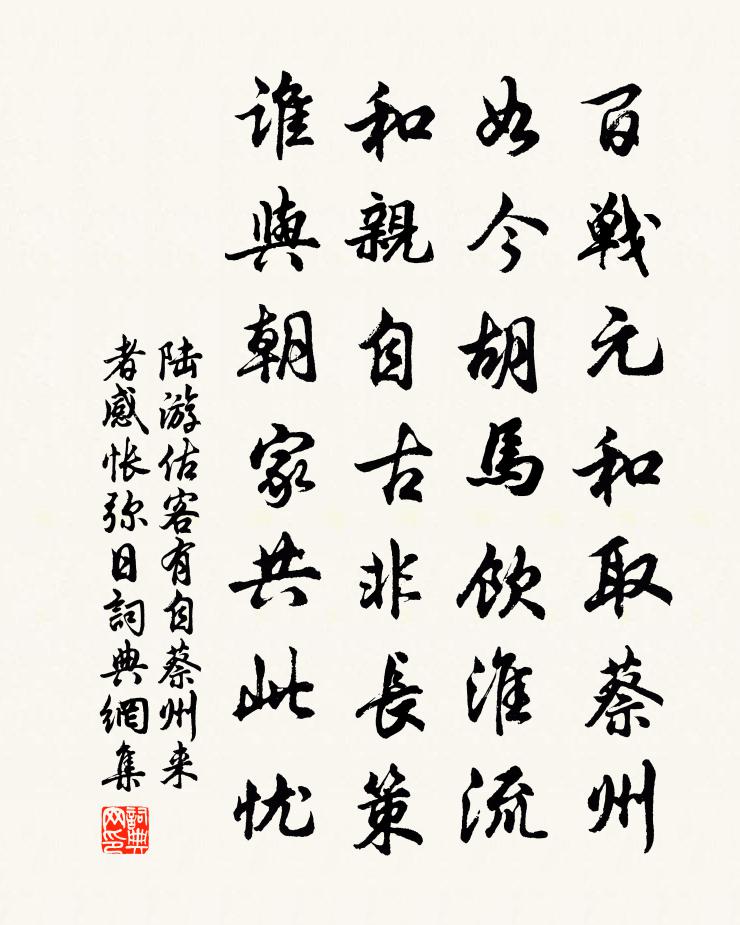 百戦元和取蔡州
如今胡馬飲淮流
和親自古非長策
誰與朝家共此忧
陆游估客有自蔡州来
者感怅弥日詞典網集
詞典
网印